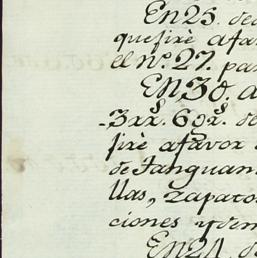 En 25. de
que firè afav
el nº. 27. pa
En 30. d
3xx. 60x. de
firè afavor
de Tanguan
llas, zapato
ciones y dem
En 24. d